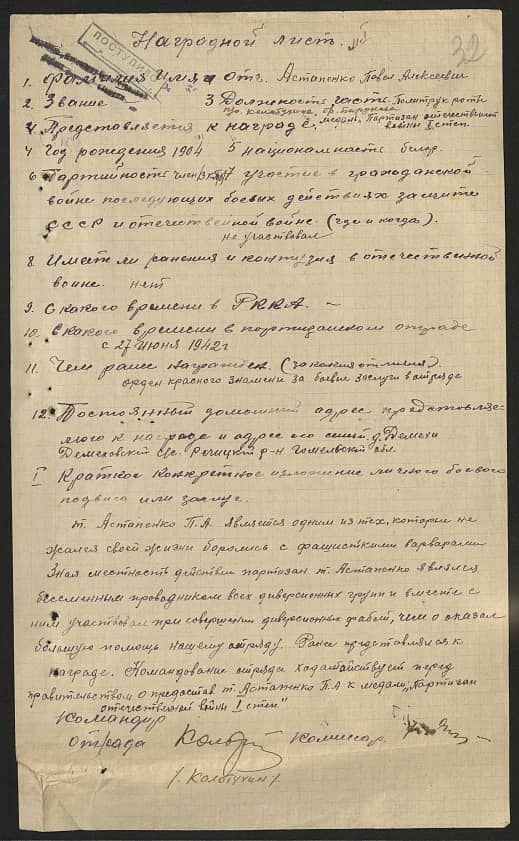 Наградной лист.
32
ПОСТУПИЛ
1. Фамилия Имя и отч. Астапенко Павел Алексеевич
2. Звание 3 Должность часть. Политрук роты
п/о. Калатухина, бр.
4. Представляется к награде, медаль, Партизан отечественной
войны I степ.
4 Год рождения 1904 5 национальность белор.
6. Партийность член ВКП/б 7 участие в гражданской
войне последующих боевых действиях защите
СССР и отечественной войне. (где и когда).
не участвовал
8. Имеет ли ранения и контузия в отечественной
войне. нет
9. С какого времени в РККА. –
10. С какого времени в партизанском отряде
с 27 июня 1942 г
11. Чем ранее награжден. (за какия отличия).
орден красного знамени за боевые заслуги в отряде
12. Постоянный домашний адрес представляе-
мого к награде и адрес его семьи. д. Демехи
Демеховский с/с. Речицкий р-н Гомельской обл.
I Краткое конкретное изложение личного боевого
подвига или заслуг.
т. Астапенко П.А является одним из тех, которые не
жалея своей жизни боролись с фашисткими варварами
Зная местность действия партизан т. Астапенко являлся
бессменным проводником всех диверсионных групп и вместе с
ним участвовал при совершении диверсионных работ, чем оказал
большую помощь нашему отряду. Ранее представлялся к
награде. Командование отряда ходатайствует перед
правительством о предостав т. Астапенко П.А к медали, "Партизан
отечественной войны I степ"
Командир
отряда Комиссар
/. Колотухин /.